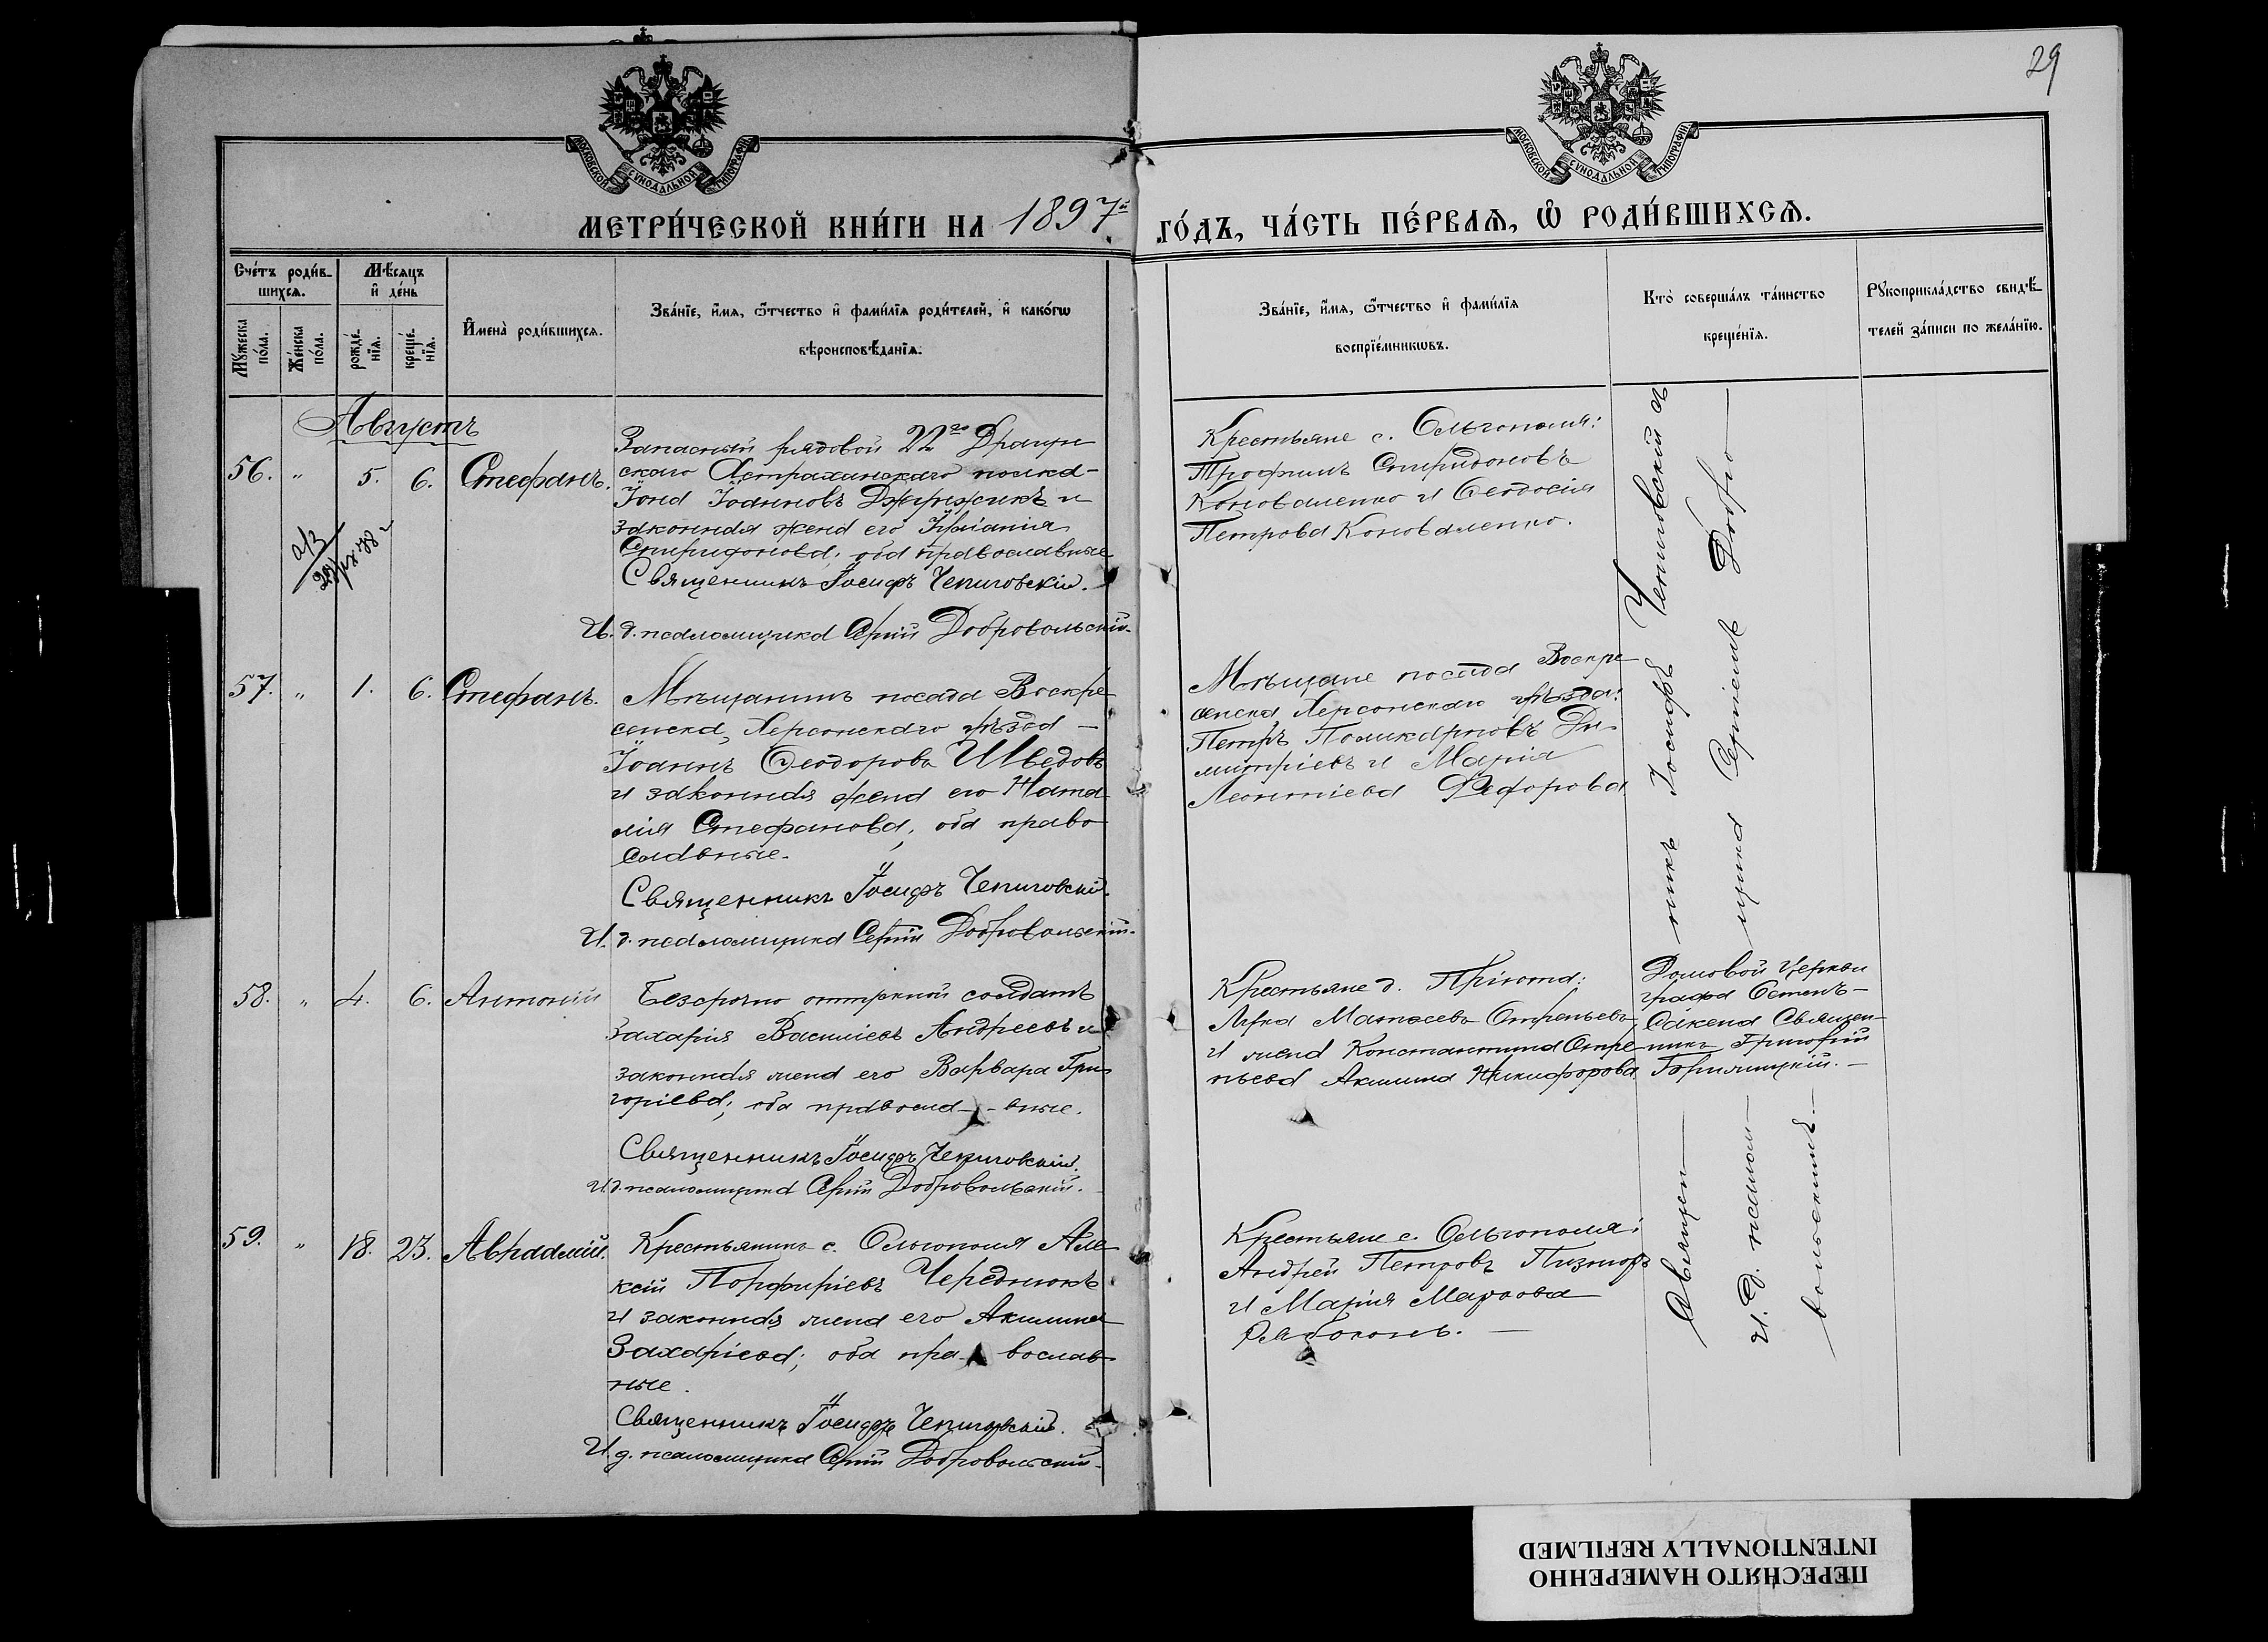 29
МОСКОВСКОЙ СѴНОДАЛЬНОЙ ТИПОГРАФІИ
МОСКОВСКОЙ СѴНОДАЛЬНОЙ ТИПОГРАФІИ
МЕТРИ́ЧЕСКОЙ КНИ́ГИ НА 1897й ГО́ДЪ, ЧА́СТЬ ПЕ́РВАѦ, Ѡ РОДИ́ВШИХСѦ.
Сче́тъ роди́в-
шихсѧ.
Мꙋжеска по́ла.
Же́нска по́ла.
Мѣ́сѧцъ
и҆ де́нь
рожде́-
нїѧ.
креще́-
нїѧ.
И҆мена̀ роди́вшихсѧ.
Зва́нїе, и҆́мѧ, ѻ҆́тчество и҆ фами́лїѧ роди́телей, и҆ како́гѡ
вѣроисповѣ́данїѧ.
Зва́нїе, и҆́мѧ, ѻ҆́тчество и҆ фами́лїѧ
воспрїе́мникѡвъ.
Кто̀ соверша́лъ та́инство
креще́нїѧ.
Рꙋкоприкла́дство свидѣ́-
телей за́писи по жела́нїю.
Августъ
56. " 5. 6. Стефанъ.
Запасный рядовой 22го Драгун
скаго Астраханскаго полка-
Іоанновъ
и
законная жена его
Спиридонова, оба православные
Священникъ Іосифъ Чепиговскій.
И. д. псаломщика Сергій Добровольскій.
Крестьяне с. Ольгополя:
Трофимъ Спиридоновъ
Коноваленко и Ѳеодосія
Петрова Коноваленко.
57. " 1. 6. Стефанъ.
Мѣщанинъ посада Воскре
сенска, Херсонскаго уѣзда —
Іоаннъ Ѳеодоровъ Шведовъ
и законная жена его Ната
лія Стефанова, оба право
славные.
Священникъ Іосифъ Чепиговскій.
И. д. псаломщика Сергій Добровольскій.
Мѣщане посада Воскре
сенска, Херсонскаго уѣзда:
Петръ Поликарповъ Ди
митріевъ и Марія
Леонтіева Федорова
58. " 4. 6. Антоній
Безсрочно отпускной солдатъ
Захарія Василіевъ Андреевъ и
законная жена его Варвара Гри
горіева; оба правосла- - вные.
Священникъ Іосифъ Чепиговскій.
И. д. псаломщика Сергій Добровольскій.
Крестьяне д. Пріюта:
Лука Матѳеевъ Отреньевъ
и жена Константина Отре
ньева Акилина Никифорова
Домовой Церкви
графа Остенъ-
Сакена Священ-
никъ Григорій
59. " 18. 23. Авраамій.
Крестьянинъ с. Ольгополя Але
ксій Порфиріевъ Череднюкъ
и законная жена его Акилина
Захаріева; оба пра- вослав
ные.
Священникъ Іосифъ Чепиговскій.
И. д. псаломщика Сергій Добровольскій.
Крестьяне с. Ольгополя:
Андрей Петровъ
и Марія Маркова
Рябоконь. —
Священ— никъ Іосифъ Чепиговскій
И. д. псалом— щика Сергій Добро—
вольскій.—
ПЕРЕСНЯТО НАМЕРЕННО
INTENTIONALLY REFILMED